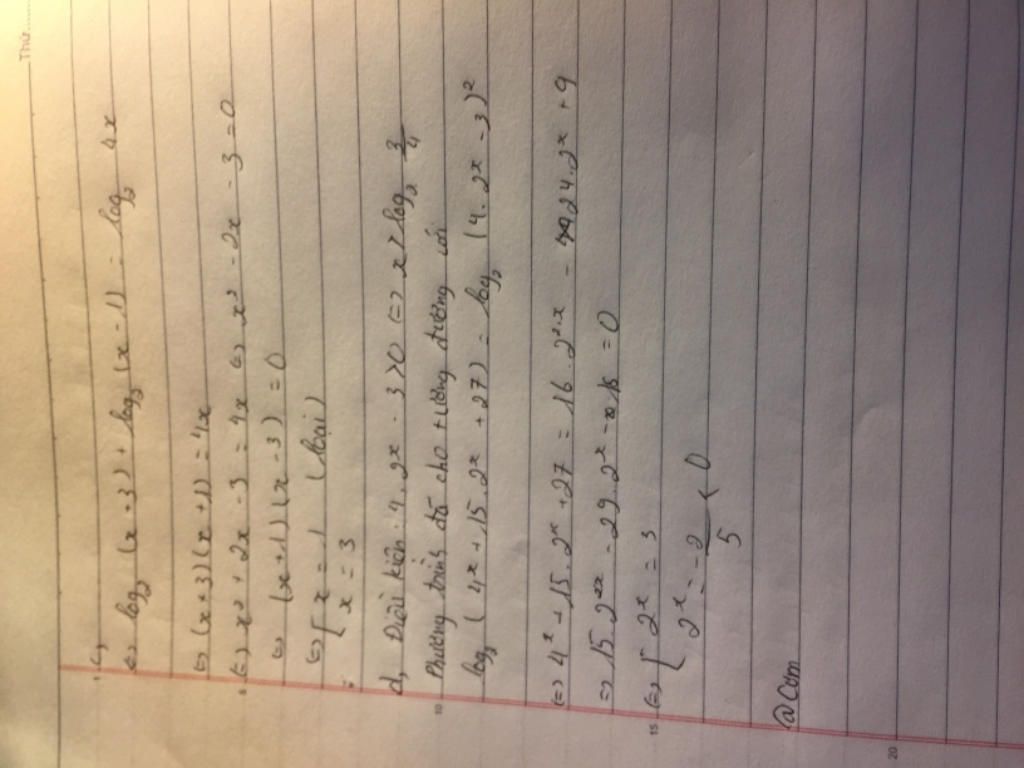 Thứ.
c,
<=> log₂ (x + 3) + log₂ (x - 1) = log₂ 4x
<=> (x + 3)(x + 1) = 4x
<=> x² + 2x - 3 = 4x <=> x² - 2x - 3 = 0
<=> (x + 1)(x - 3) = 0
<=> [ x = -1 (loại)
x = 3
d, Điều kiện: 4. 2ˣ - 3 > 0 <=> x > log₂ 3/4
10 Phương trình đã cho tương đương với
log₂ (4ˣ + 15. 2ˣ + 27) = log₂ (4. 2ˣ - 3)²
<=> 4ˣ + 15. 2ˣ + 27 = 16. 2²·ˣ - 24. 2ˣ + 9
<=> 15. 2²ˣ - 29. 2ˣ - 18 = 0
15 <=> [ 2ˣ = 3
2ˣ = -2/5 < 0
@Com
20